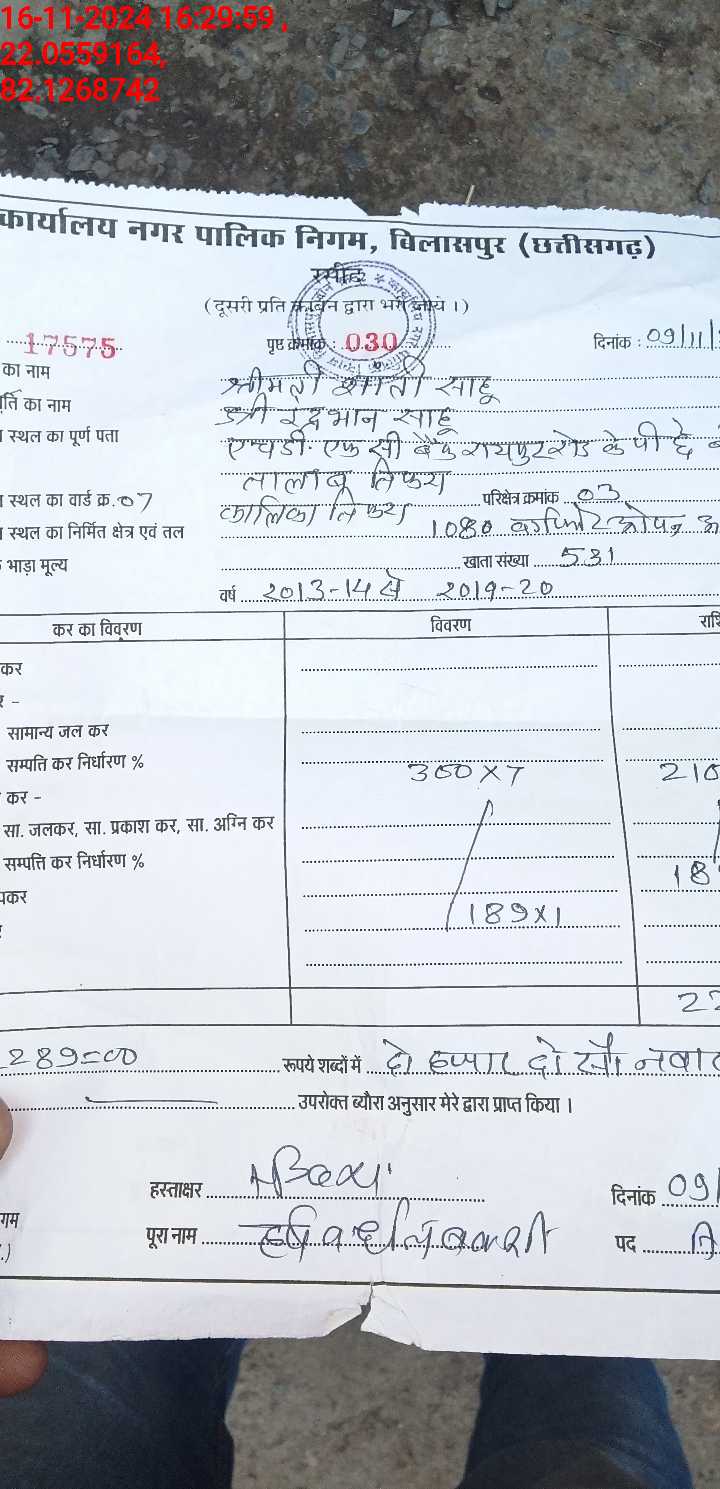 16-11-2024 16:29:59,
22.0559164,
82.1268742
कार्यालय नगर पालिक निगम, बिलासपुर (छत्तीसगढ़)
रसीद
(दूसरी प्रति कार्बन द्वारा भरी जाये ।)
17575 पृष्ठ क्रमांक : 030 दिनांक : 09/11/
का नाम श्रीमती शांती साहू
का नाम श्री इंद्रभान साहू
स्थल का पूर्ण पता एचडी. एफ सी बैंक रायपुर रोड के पीछे
तालाब तिफरा
स्थल का वार्ड क्र. 07 कालिका तिफरा परिक्षेत्र क्रमांक 03
स्थल का निर्मित क्षेत्र एवं तल 1080
भाड़ा मूल्य खाता संख्या 531
वर्ष 2013-14 से 2019-20
कर का विवरण विवरण
कर
सामान्य जल कर
सम्पति कर निर्धारण % 300 X 7 210
कर -
सा. जलकर, सा. प्रकाश कर, सा. अग्नि कर
सम्पत्ति कर निर्धारण % 18
189 X 1
22
289=00 रूपये शब्दों में दो हजार दो सौ नवा
उपरोक्त ब्यौरा अनुसार मेरे द्वारा प्राप्त किया ।
हस्ताक्षर दिनांक 09/
पूरा नाम पद